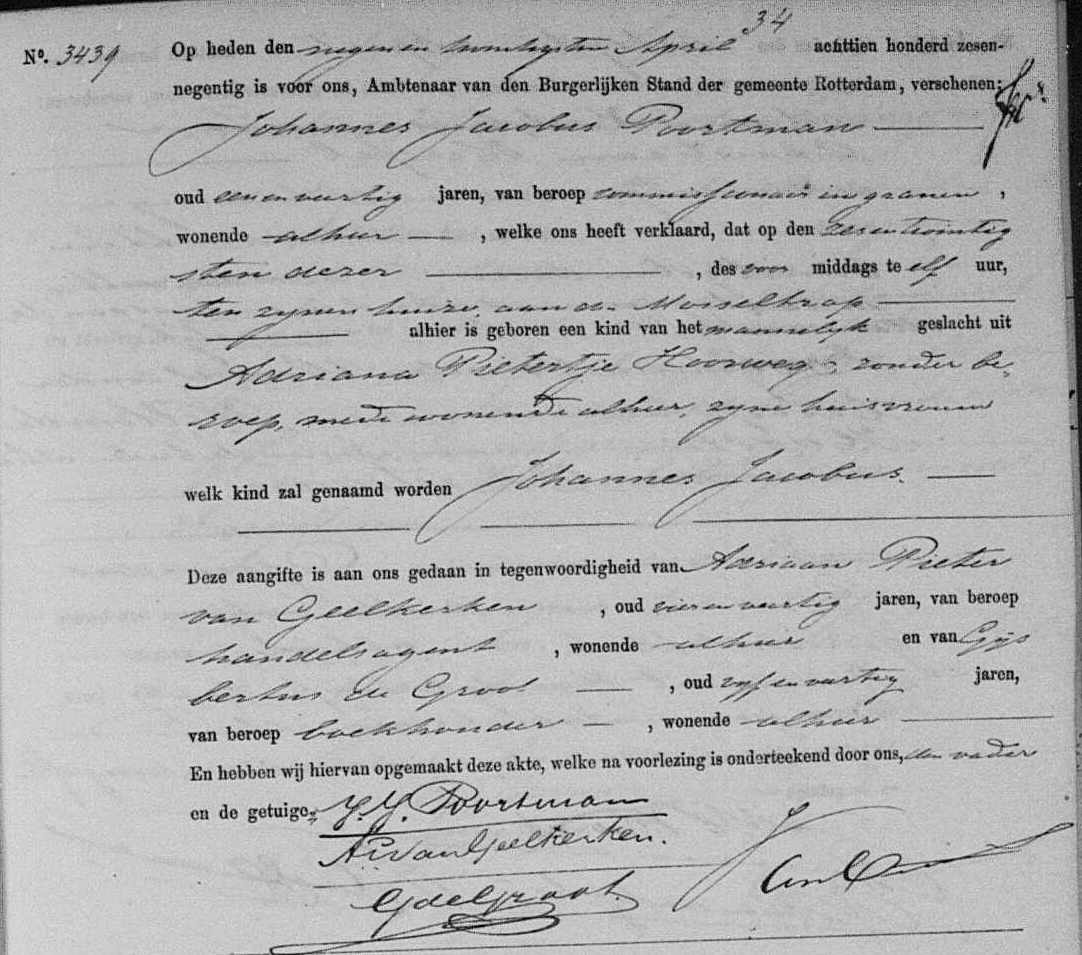 34
No. 3439 Op heden den negen en twintigsten April achttien honderd zesen-
negentig is voor ons, Ambtenaar van den Burgerlijken Stand der gemeente Rotterdam, verschenen:
Johannes Jacobus Poortman
oud een en veertig jaren, van beroep commissionair in granen,
wonende alhier, welke ons heeft verklaard, dat op den zesentwintig
sten dezer, des voor middags te elf uur,
ten zynen huize, aan de Mosseltrap
alhier is geboren een kind van het mannelyk geslacht uit
Adriana Pietertje Hoorweg, zonder be-
roep, mede wonende alhier, zyne huisvrouw
welk kind zal genaamd worden Johannes Jacobus.
Deze aangifte is aan ons gedaan in tegenwoordigheid van Adriaan Pieter
van Geelkerken, oud vier en veertig jaren, van beroep
handelsagent, wonende alhier en van Gijs
bertus de Groot, oud vyf en veertig jaren,
van beroep boekhouder, wonende alhier
En hebben wij hiervan opgemaakt deze akte, welke na voorlezing is onderteekend door ons, den vader
en de getuigen J. J. Poortman
A P van Geelkerken.
G de Groot.